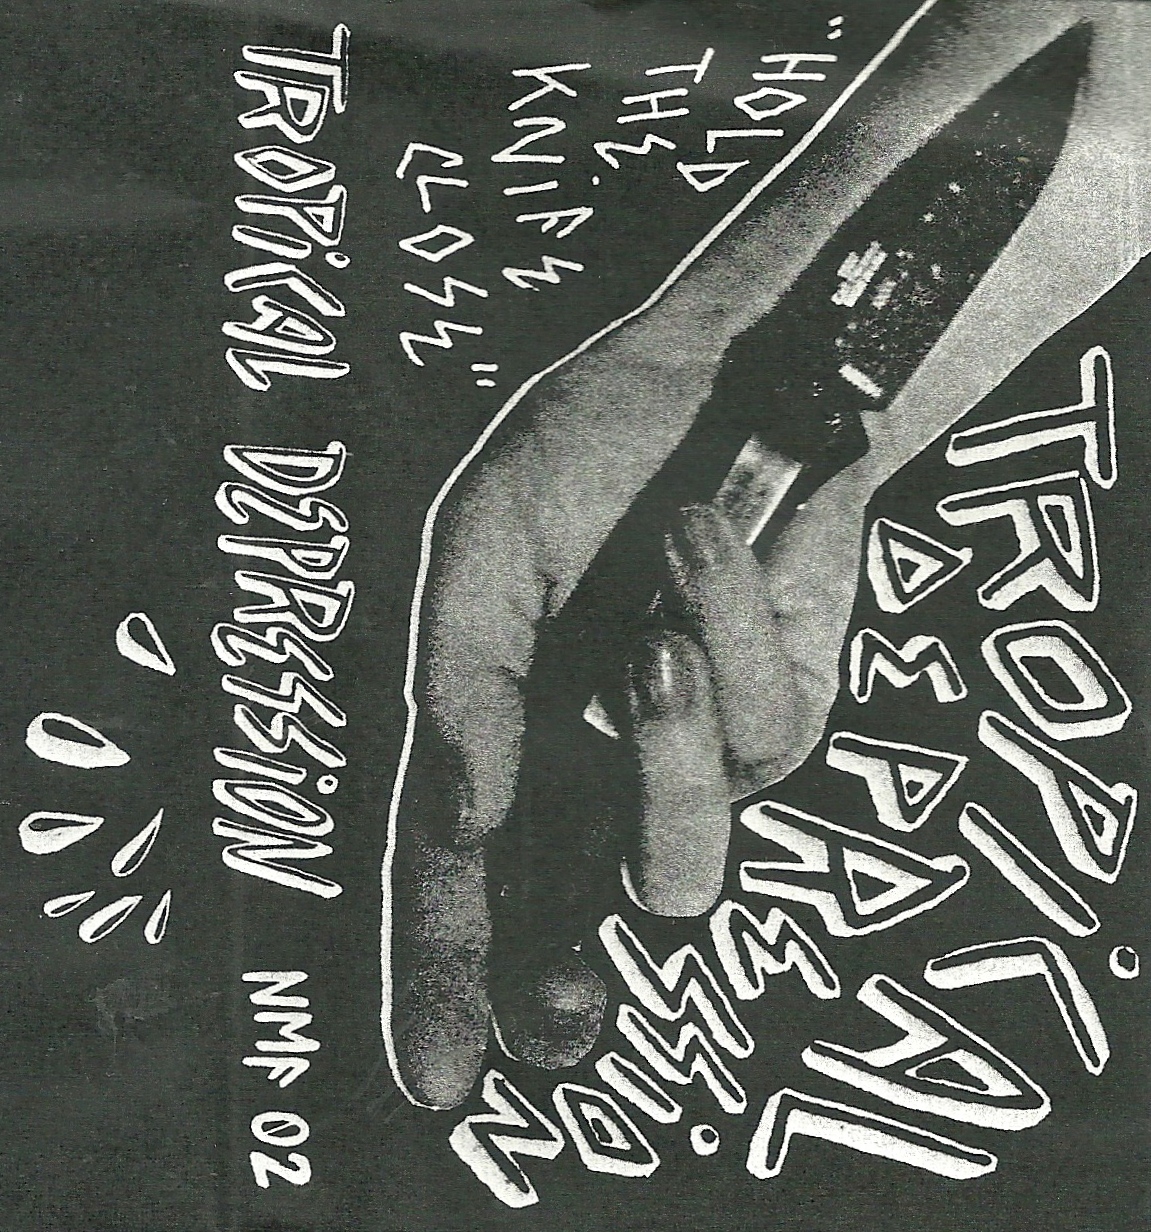 TROPiCAL
DEPRESSiON
"HOLD
THE
KNiFE
CLOSE"
TROPiCAL DEPRESSiON NMF 02